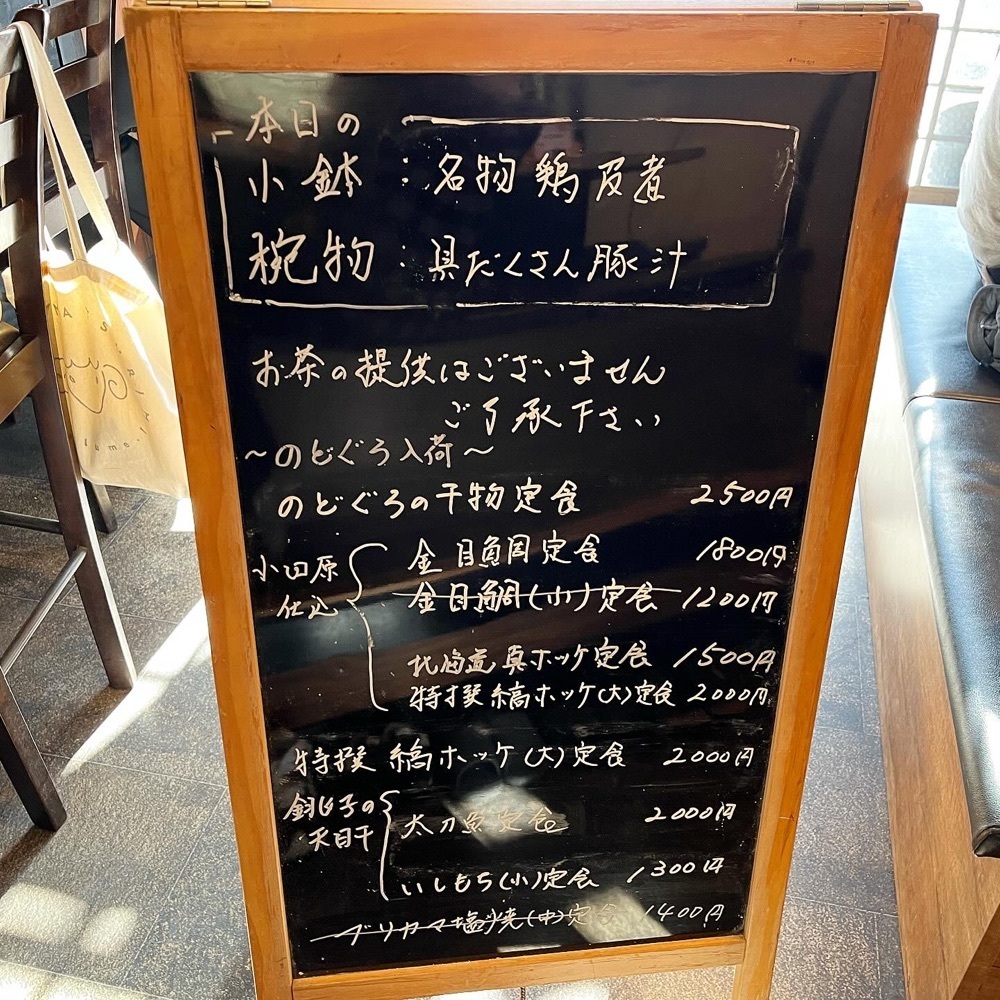 本日の
小鉢：名物 鶏皮煮
椀物：具だくさん豚汁
お茶の提供はございません
ご了承下さい
～のどぐろ入荷～
のどぐろの干物定食 2500円
小田原仕込
金目鯛定食 1800円
金目鯛(小)定食 1200円
北海道真ホッケ定食 1500円
特撰縞ホッケ(大)定食 2000円
特撰 縞ホッケ(大)定食 2000円
銚子の天日干
太刀魚定食 2000円
いしもち(小)定食 1300円
ブリカマ塩焼(中)定食 1400円